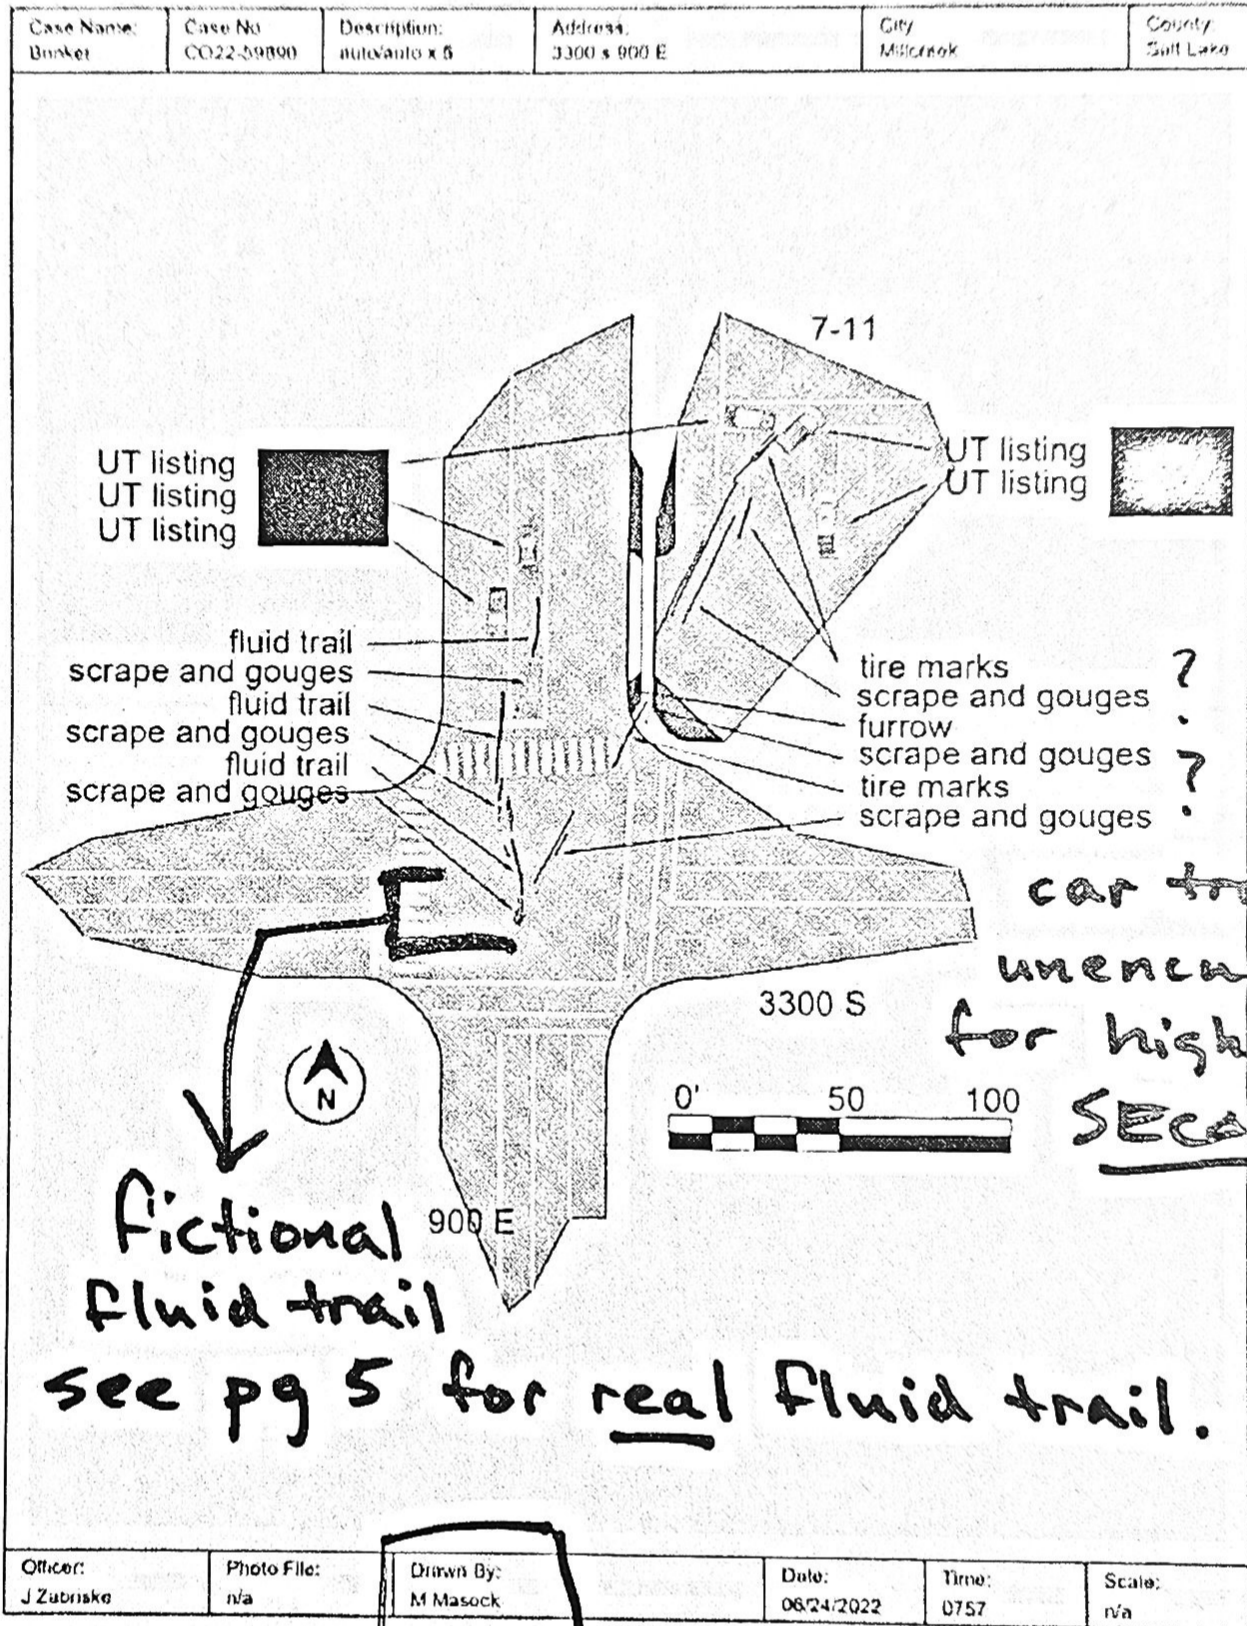 Case Name:
Bunker
Case No
CO22-59890
Description:
auto/auto x 5
Address:
3300 s 900 E
City
Millcreek
County:
Salt Lake
7-11
UT listing
UT listing
UT listing
UT listing
UT listing
fluid trail
scrape and gouges
fluid trail
scrape and gouges
fluid trail
scrape and gouges
tire marks
scrape and gouges
furrow
scrape and gouges
tire marks
scrape and gouges
?
?
car
for high
3300 S
0' 50 100
N
900 E
fictional
fluid trail
see pg 5 for real fluid trail.
Officer:
J Zabriske
Photo File:
n/a
Drawn By:
M Masock
Date:
06/24/2022
Time:
0757
Scale:
n/a